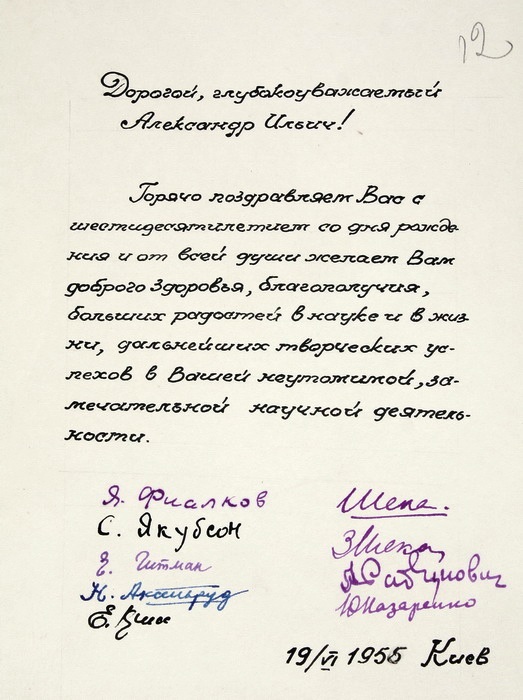 12
Дорогой, глубокоуважаемый
Александр Ильич!
Горячо поздравляем Вас с
шестидесятилетием со дня рожде
ния и от всей души желаем Вам
доброго здоровья, благополучия,
больших радостей в науке и в жиз
ни, дальнейших творческих ус-
пехов в Вашей неутомимой, за-
мечательной научной деятель-
ности.
Я. Фиалков
С. Якубсон
Е. Гитман
Шека.
З Шека
Ю Назаренко
19/VI 1955 Киев